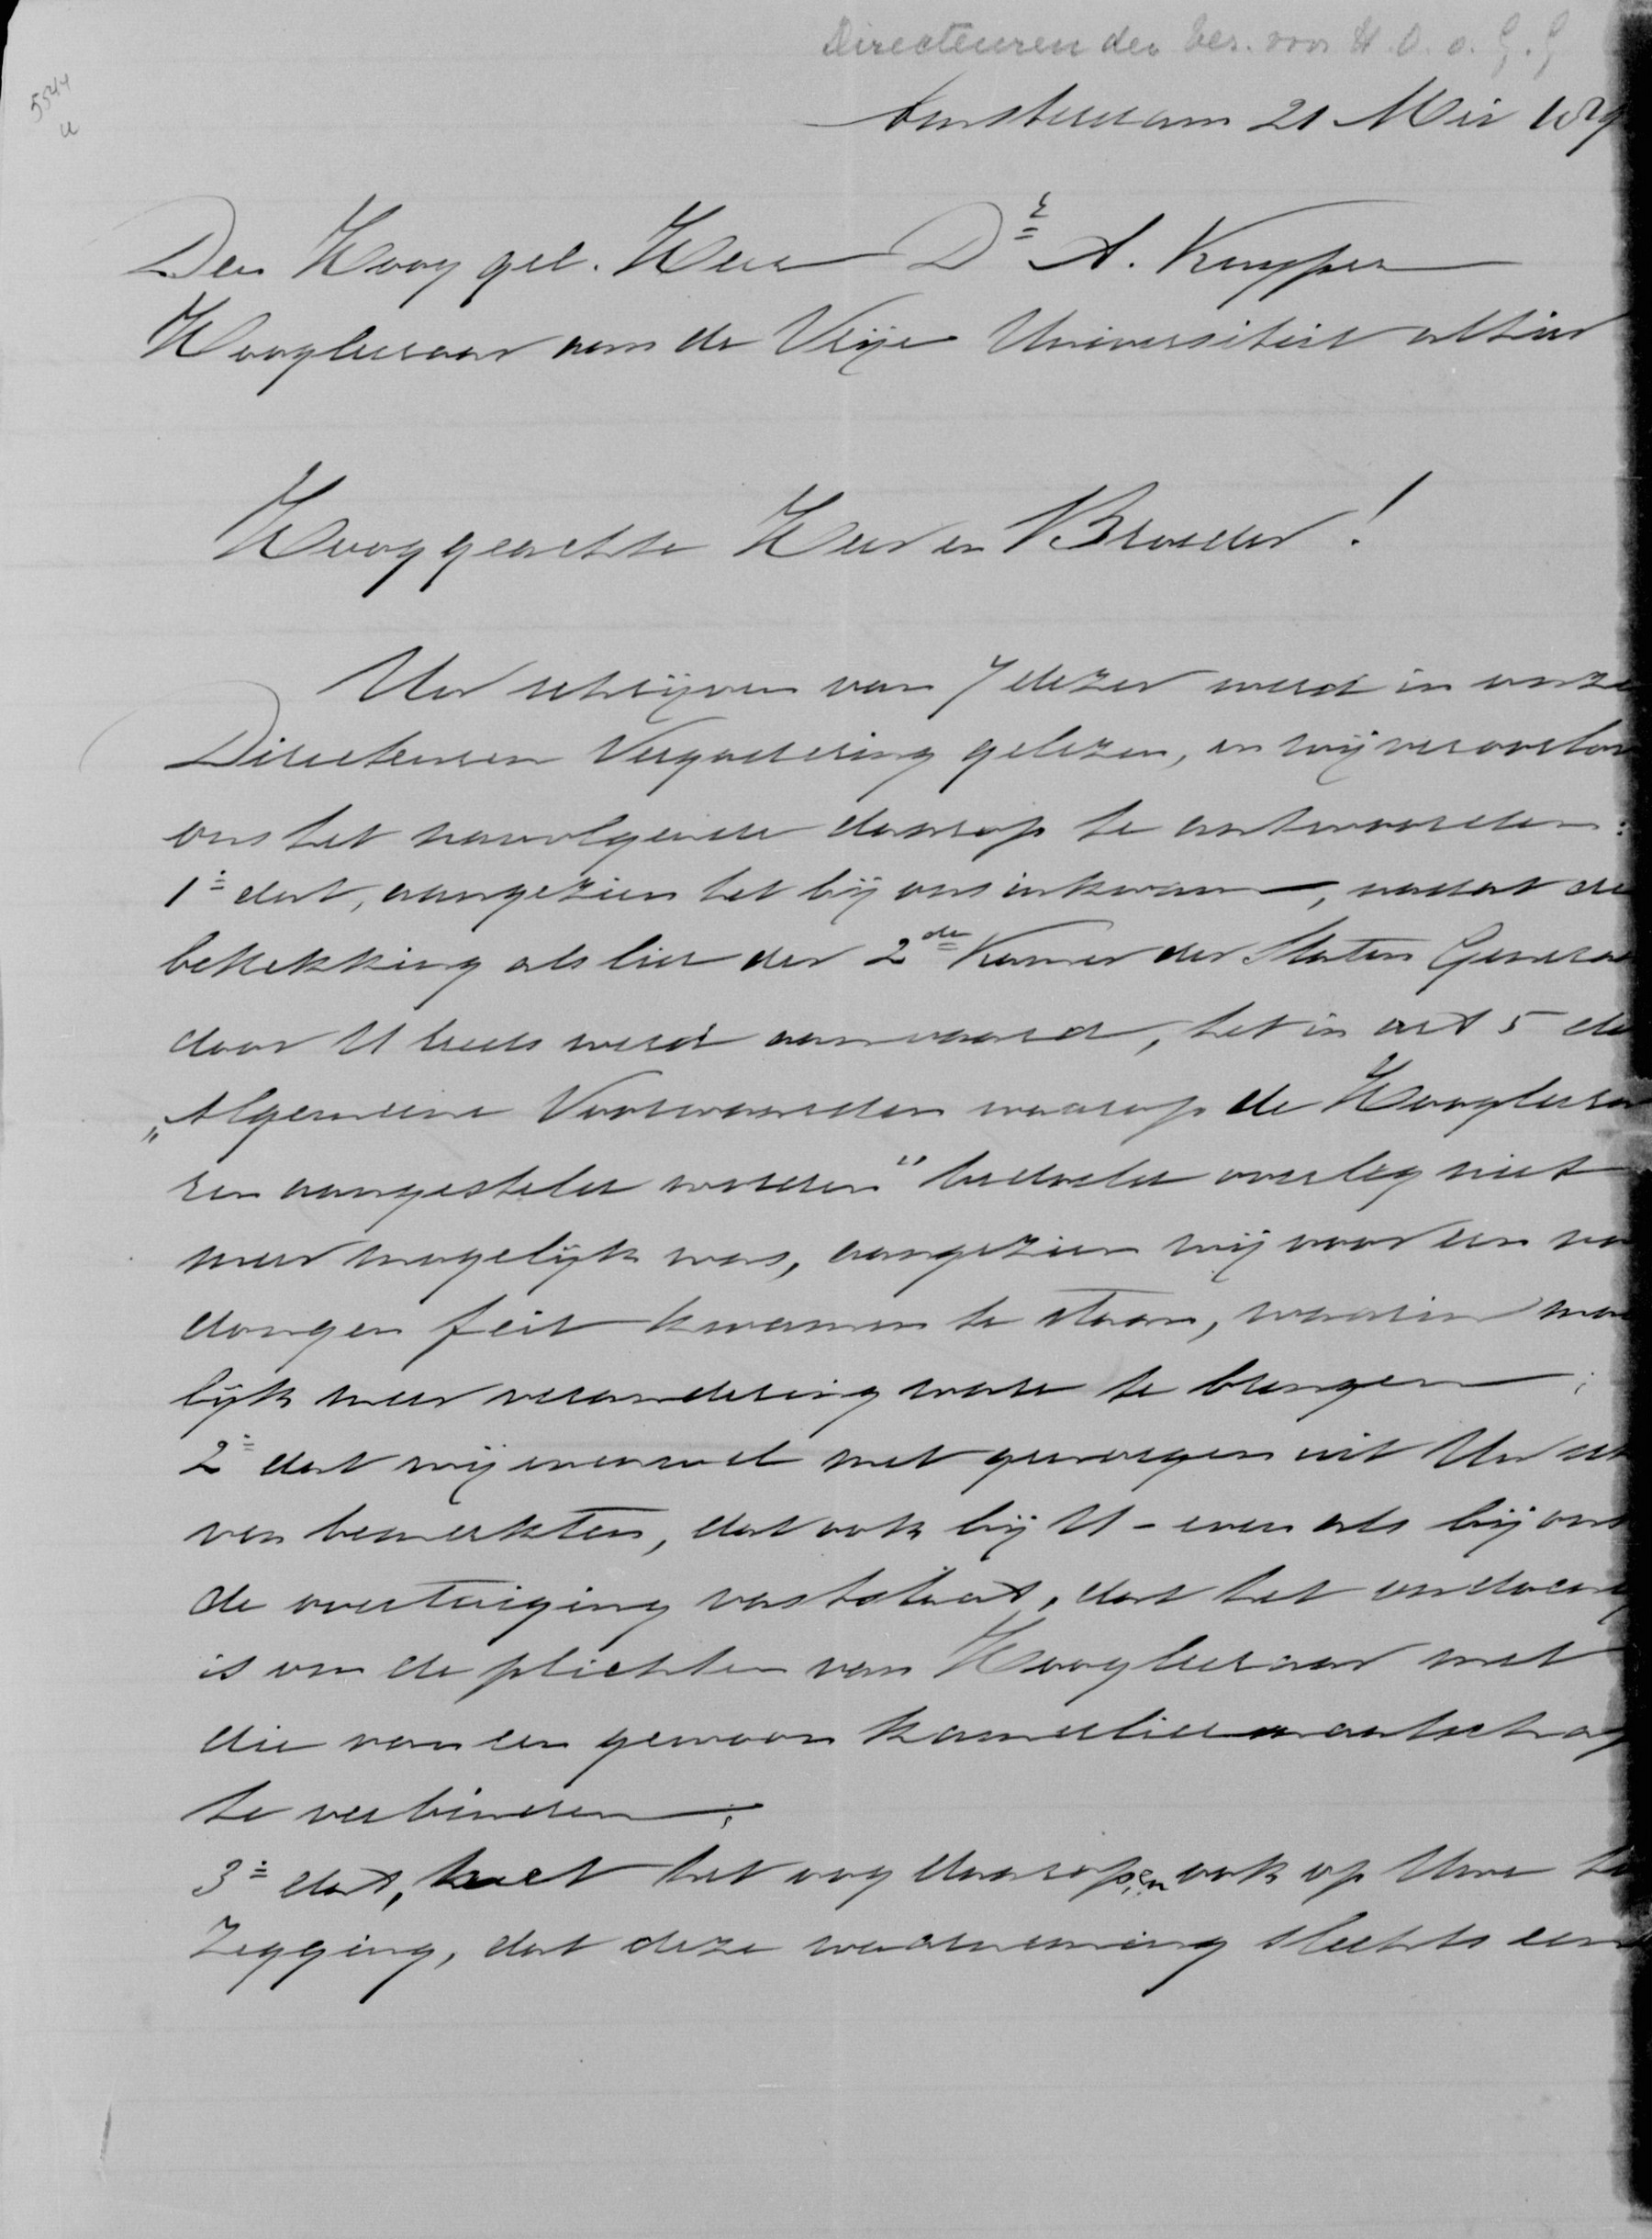 Directeuren der Ver. voor H. O. o. G. G
5544
u
Amsterdam 21 Mei 189
Den Hoog gel. Heer Dr A. Kuyper
Hoogleeraar aan de Vrije Universiteit alhier
Hooggeachte Heer en Broeder!
Uw schrijven van 7 dezer werd in onze
Directeuren Vergadering gelezen, en wij veroorloven
ons het navolgende daarop te antwoorden:
1e dat, aangezien het bij ons inkwam, nadat de
betrekking als lid der 2de Kamer der Staten Generaal
door U reeds werd aanvaard, het in art 5 der
„Algemeene Voorwaarden waarop de Hooglera
ren aangesteld worden" bedoelde overleg niet
meer mogelijk was, aangezien wij voor een vol
dongen feit kwamen te staan, waarin moei
lijk meer verandering ware te brengen;
2e dat wij evenwel met genoegen uit Uw schrij
ven bemerkten, dat ook bij U - even als bij ons
de overtuiging vaststaat, dat het ondoenlijk
is om de plichten van Hoogleeraar met
die van een gewoon kamerlidmaatschap
te verbinden;
3e dat, met het oog daarop, en ook op Uwe toe
zegging, dat deze waarneming slechts een